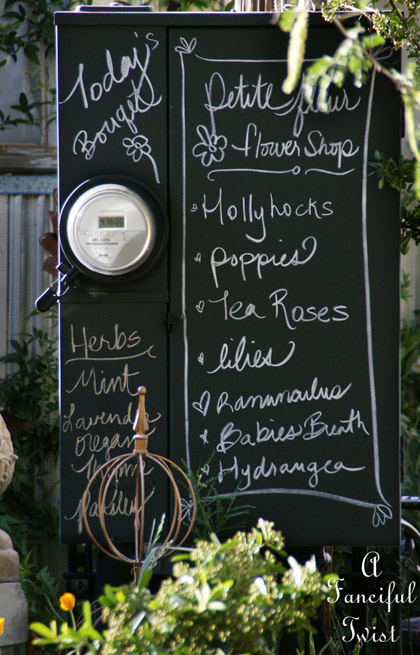 Today's
Bouquet
Petite fleur
flower Shop
Hollyhocks
Poppies
Tea Roses
lilies
Ranunculus
Babies Breath
Hydrangea
Herbs
Mint
Lavender
Oregano
Thyme
Parsley
A
Fanciful
Twist